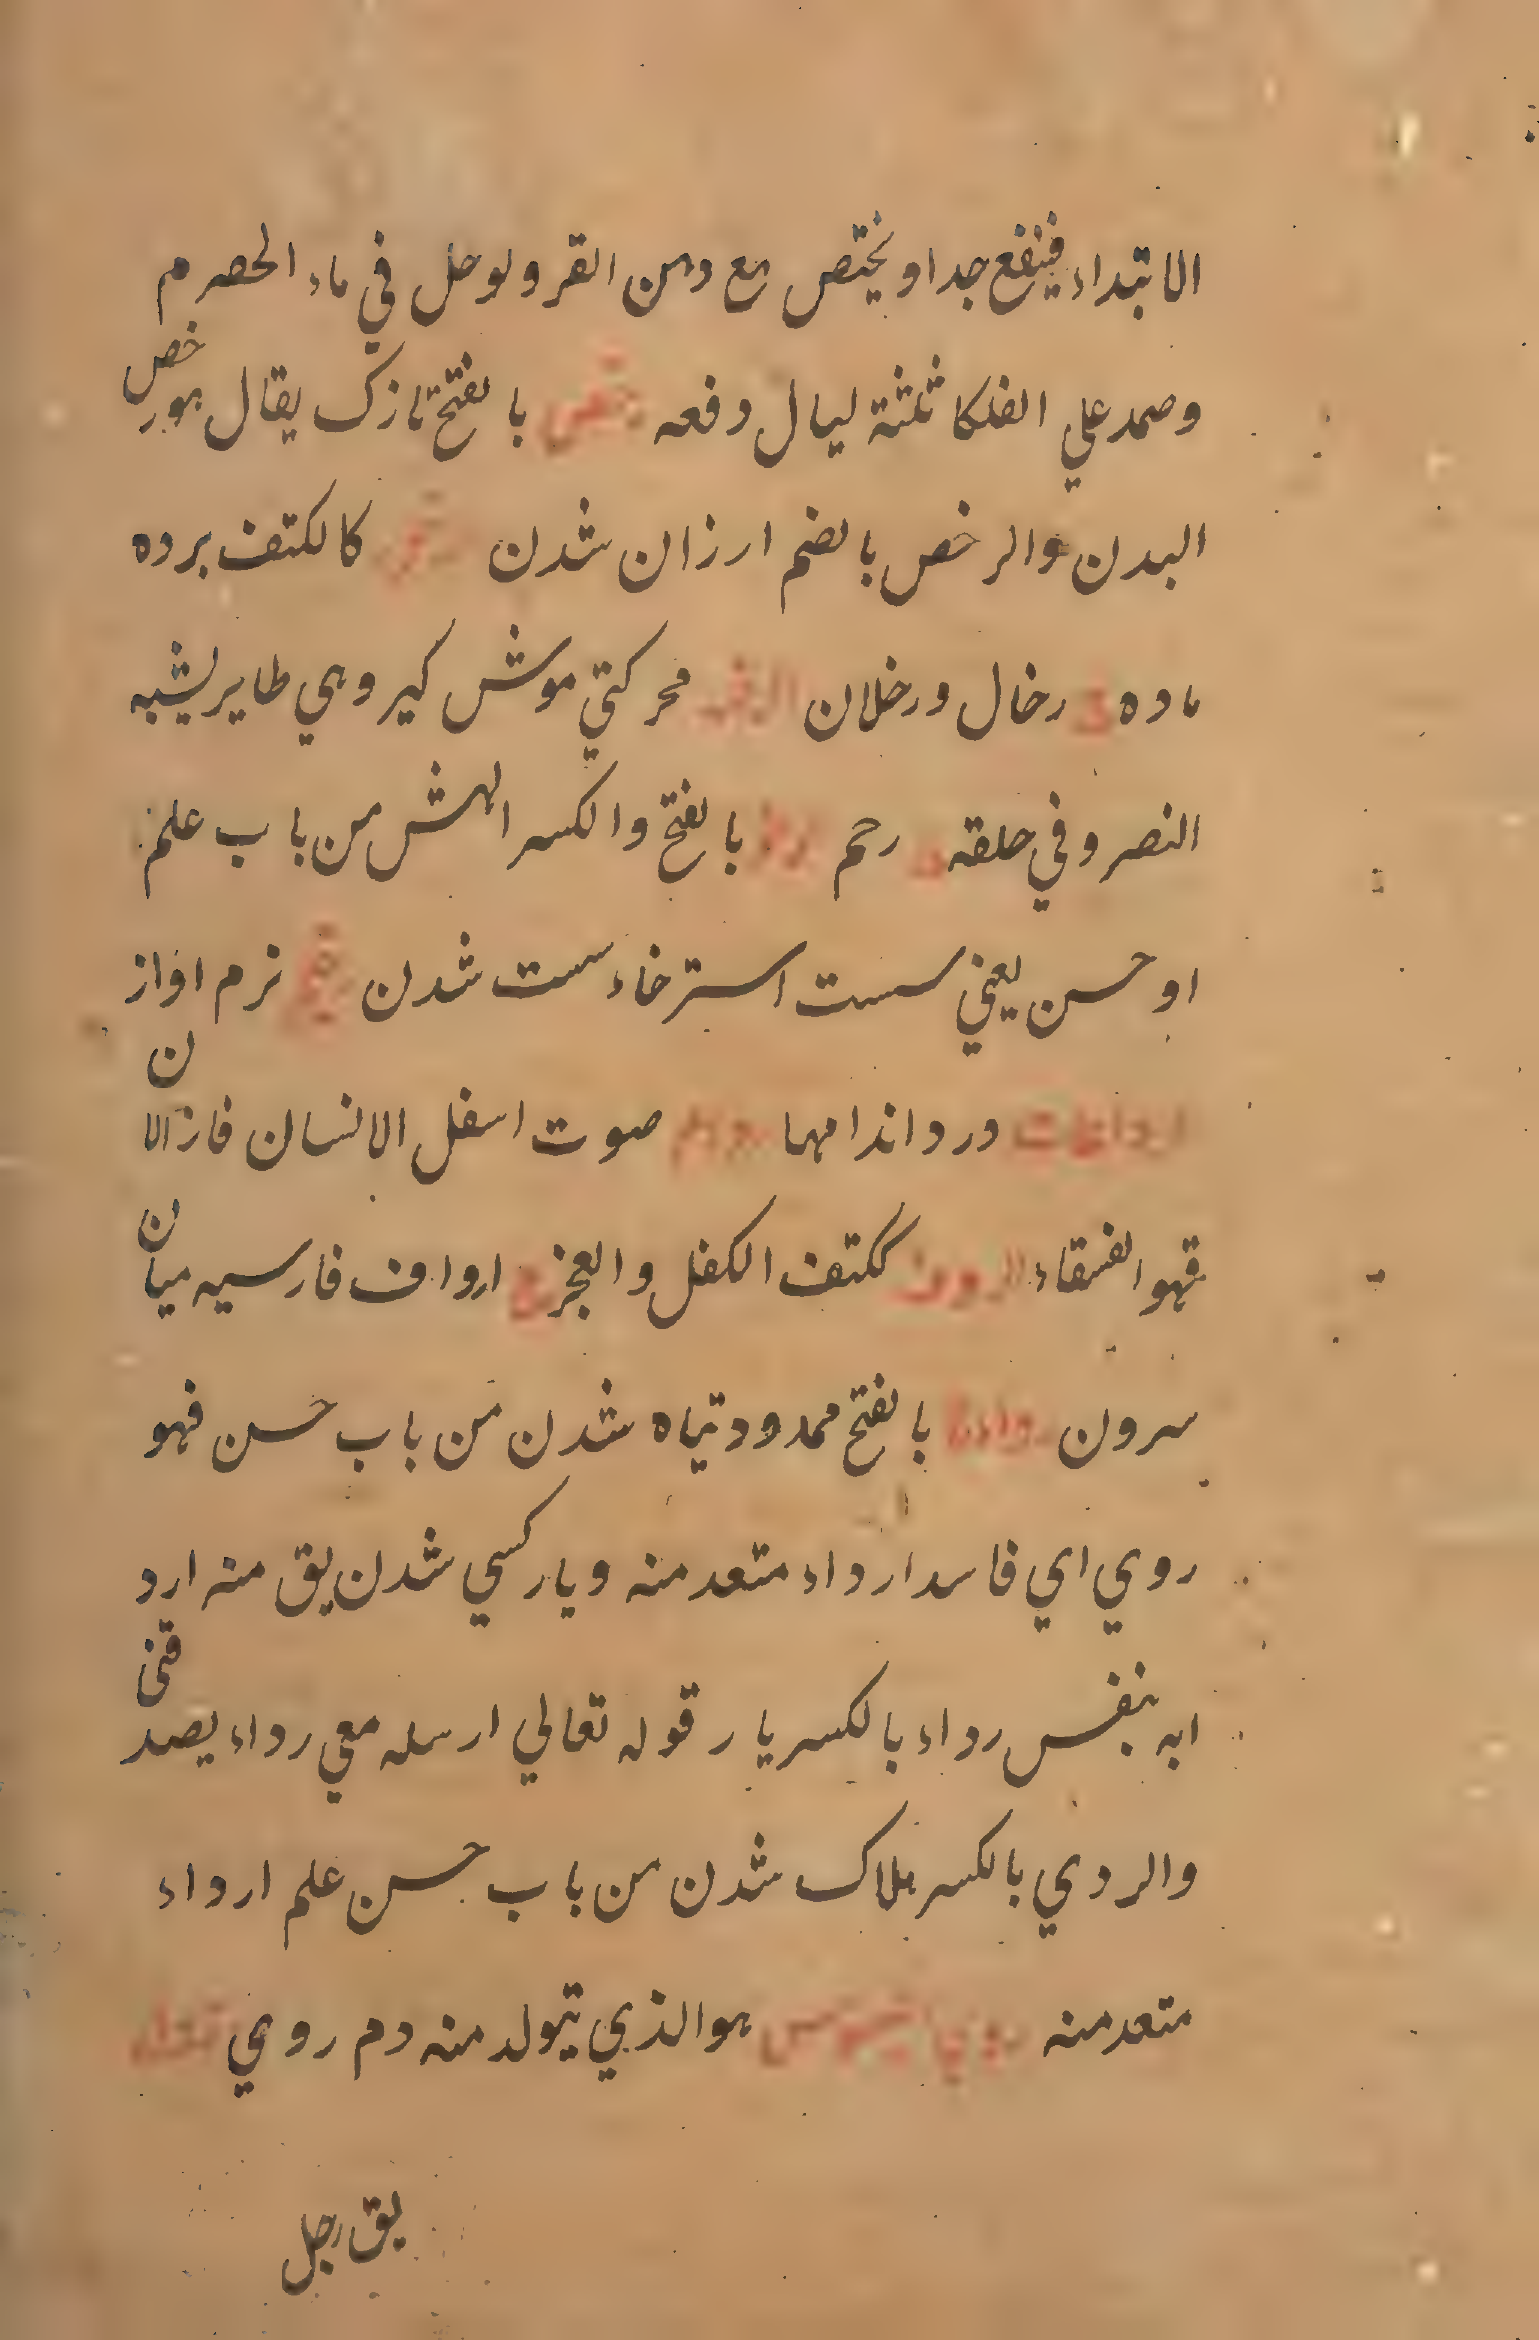 الابتداء فينفع جدا و يختص مع دهن القرو لو حل في ماء الحصرم
وصمد علي الفلكا ثلثة ليال دفعه رخص بالفتح نازك يقال هو رخص
البدن والرخص بالضم ارزان شدن كالكتف بره
ماده ج رخال ورخلان محركتي موش كير وهي طاير يشبه
النصر وفي حلقه رحم رخو بالفتح والكسر الهش من باب علم
او حسن يعني سست استرخاء سست شدن رخيم نرم اواز
درد اندامها صوت اسفل الانسان فان الان
فهو الفسقاء الردف ككتف الكفل والعجز ج ارداف فارسيه ميان
سرون رداءة بالفتح ممدود تباه شدن من باب حسن فهو
ردي اي فاسد ارداء متعد منه و يار كسي شدن يق منه ارد
ابه بنفس رداء بالكسر يار قوله تعالي ارسله معي رداء يصدقني
والردي بالكسر هلاك شدن من باب حسن علم ارداء
متعد منه ردي الكيموس هو الذي يتولد منه دم ردي
يق رجل